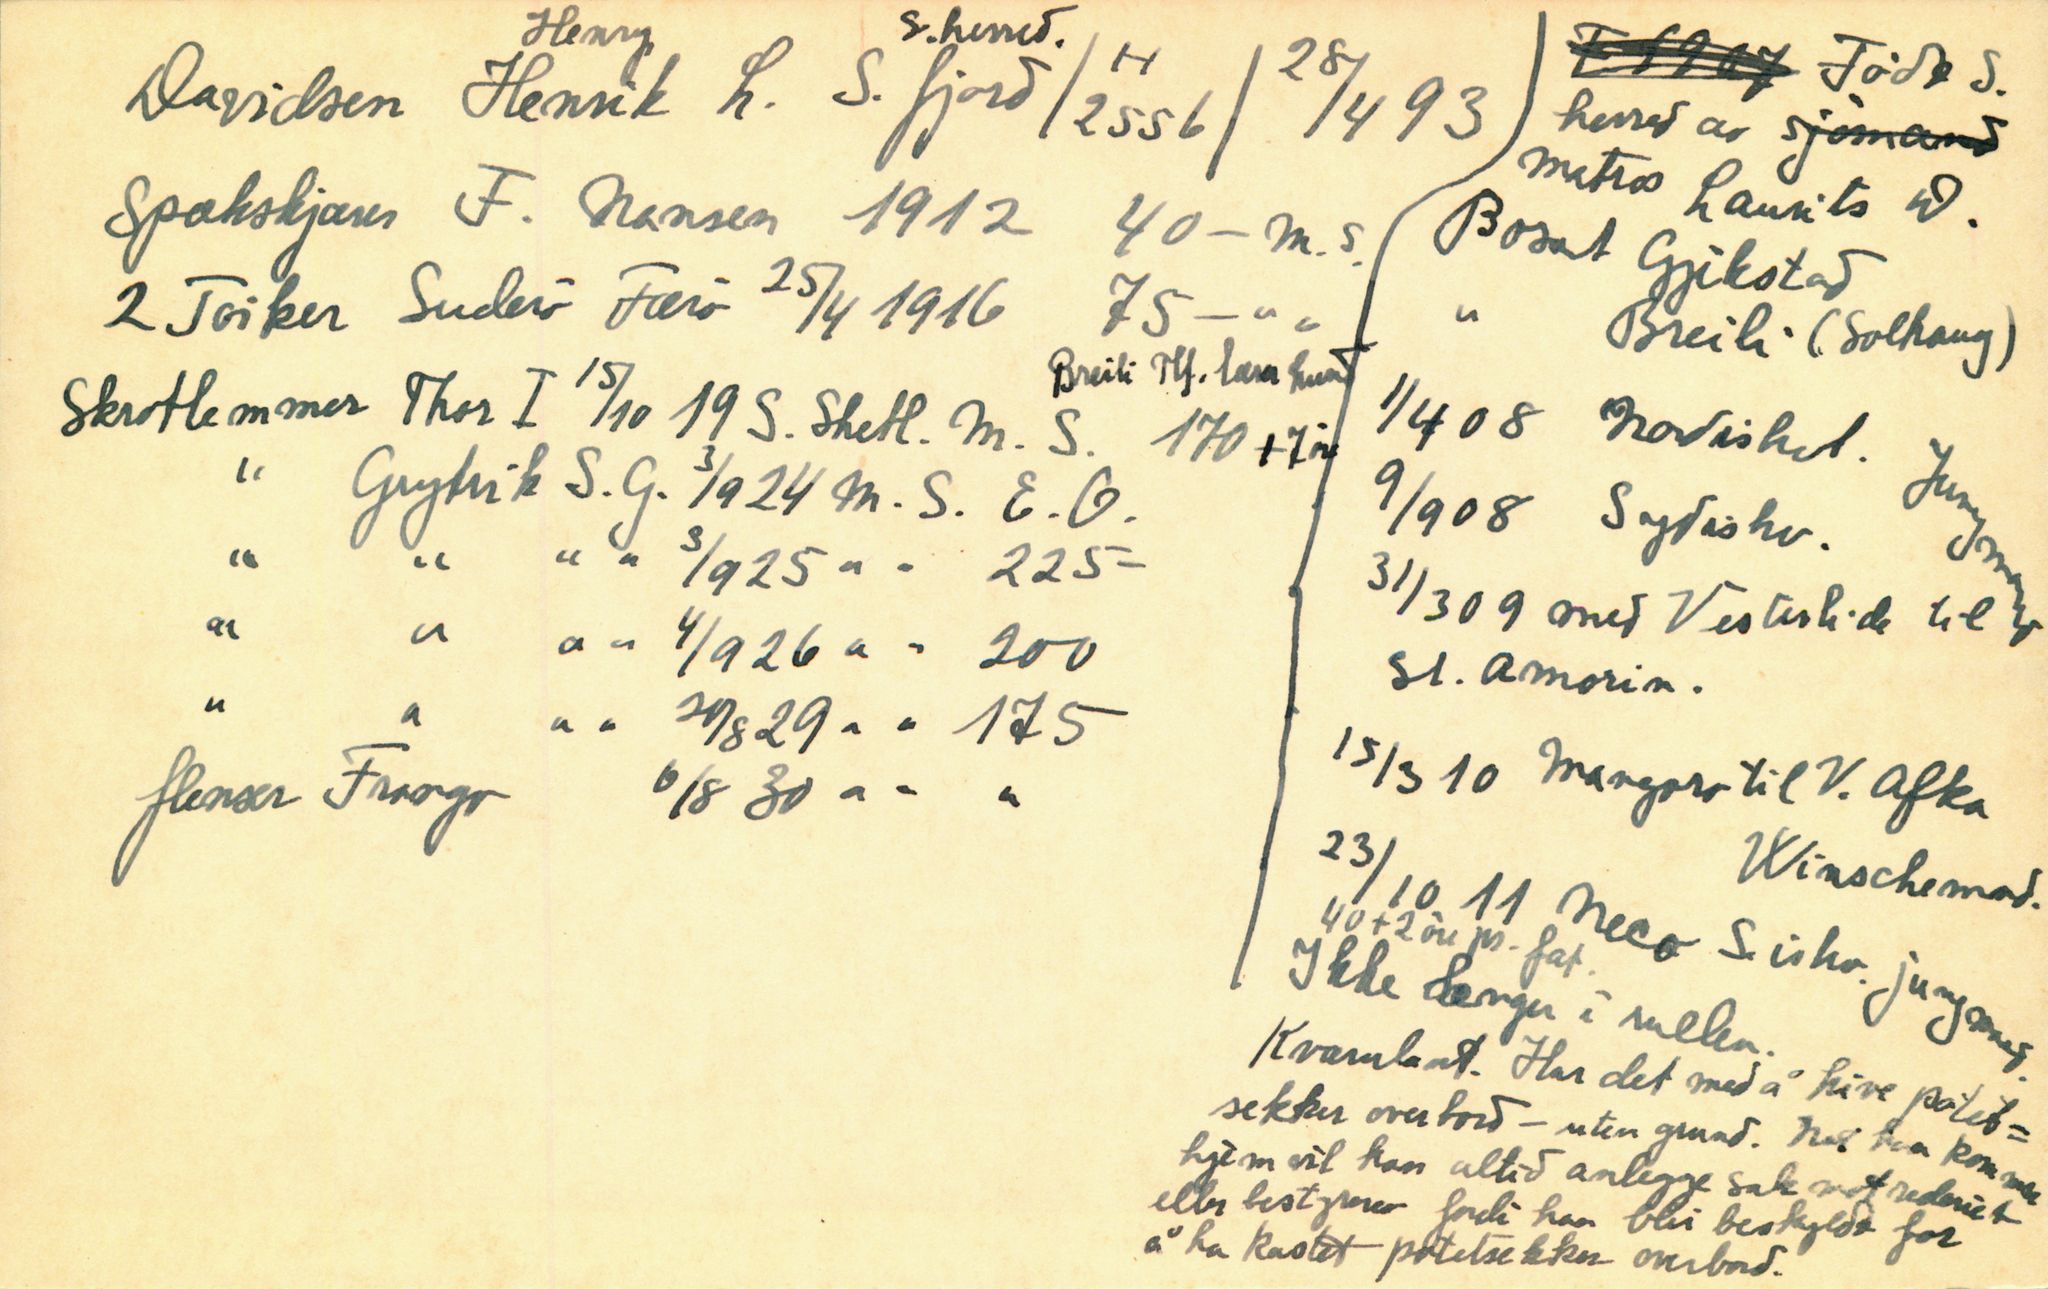 Henry S. herred.
Davidsen Henrik L. S. fjord / H 2556 / 28/4 93
Spækskjærer F. Nansen 1912 40 – M. S.
2 Koker Suderö Færö 25/4 1916 75 – " "
Breili Hf. lærer hund
Skrotlemmer Thor I 15/10 19 S. Shetl. M. S. 170 + 7 öre
" Grytvik S. G. 3/9 24 M. S. E. O.
" " " " 3/9 25 " " 225 –
" " " " 4/9 26 " " 200
" " " " 20/8 29 " " 175
flenser Frango 6/8 30 " " "
Född S.
herred av sjömand
matros Laurits D.
Bosat Gjekstad
" Breili (Solhaug)
1/4 08 Nordishvl. Jungmand
9/9 08 Sydishv.
31/3 09 med Vesterlide til
St. Amorin.
15/3 10 Mangoro til V. Afka
Winschemand.
23/10 11 Neco S. ishv. jungmand.
40 + 2 öre pr. fat.
Ikke længer i rullen.
Kværulant. Har det med å hive potet=
sekker overbord – uten grund. Når han kommer
hjem vil han altid anlegge sak mot rederiet
eller bestyrer fordi han blir beskyldt for
å ha kastet potetsekker overbord.